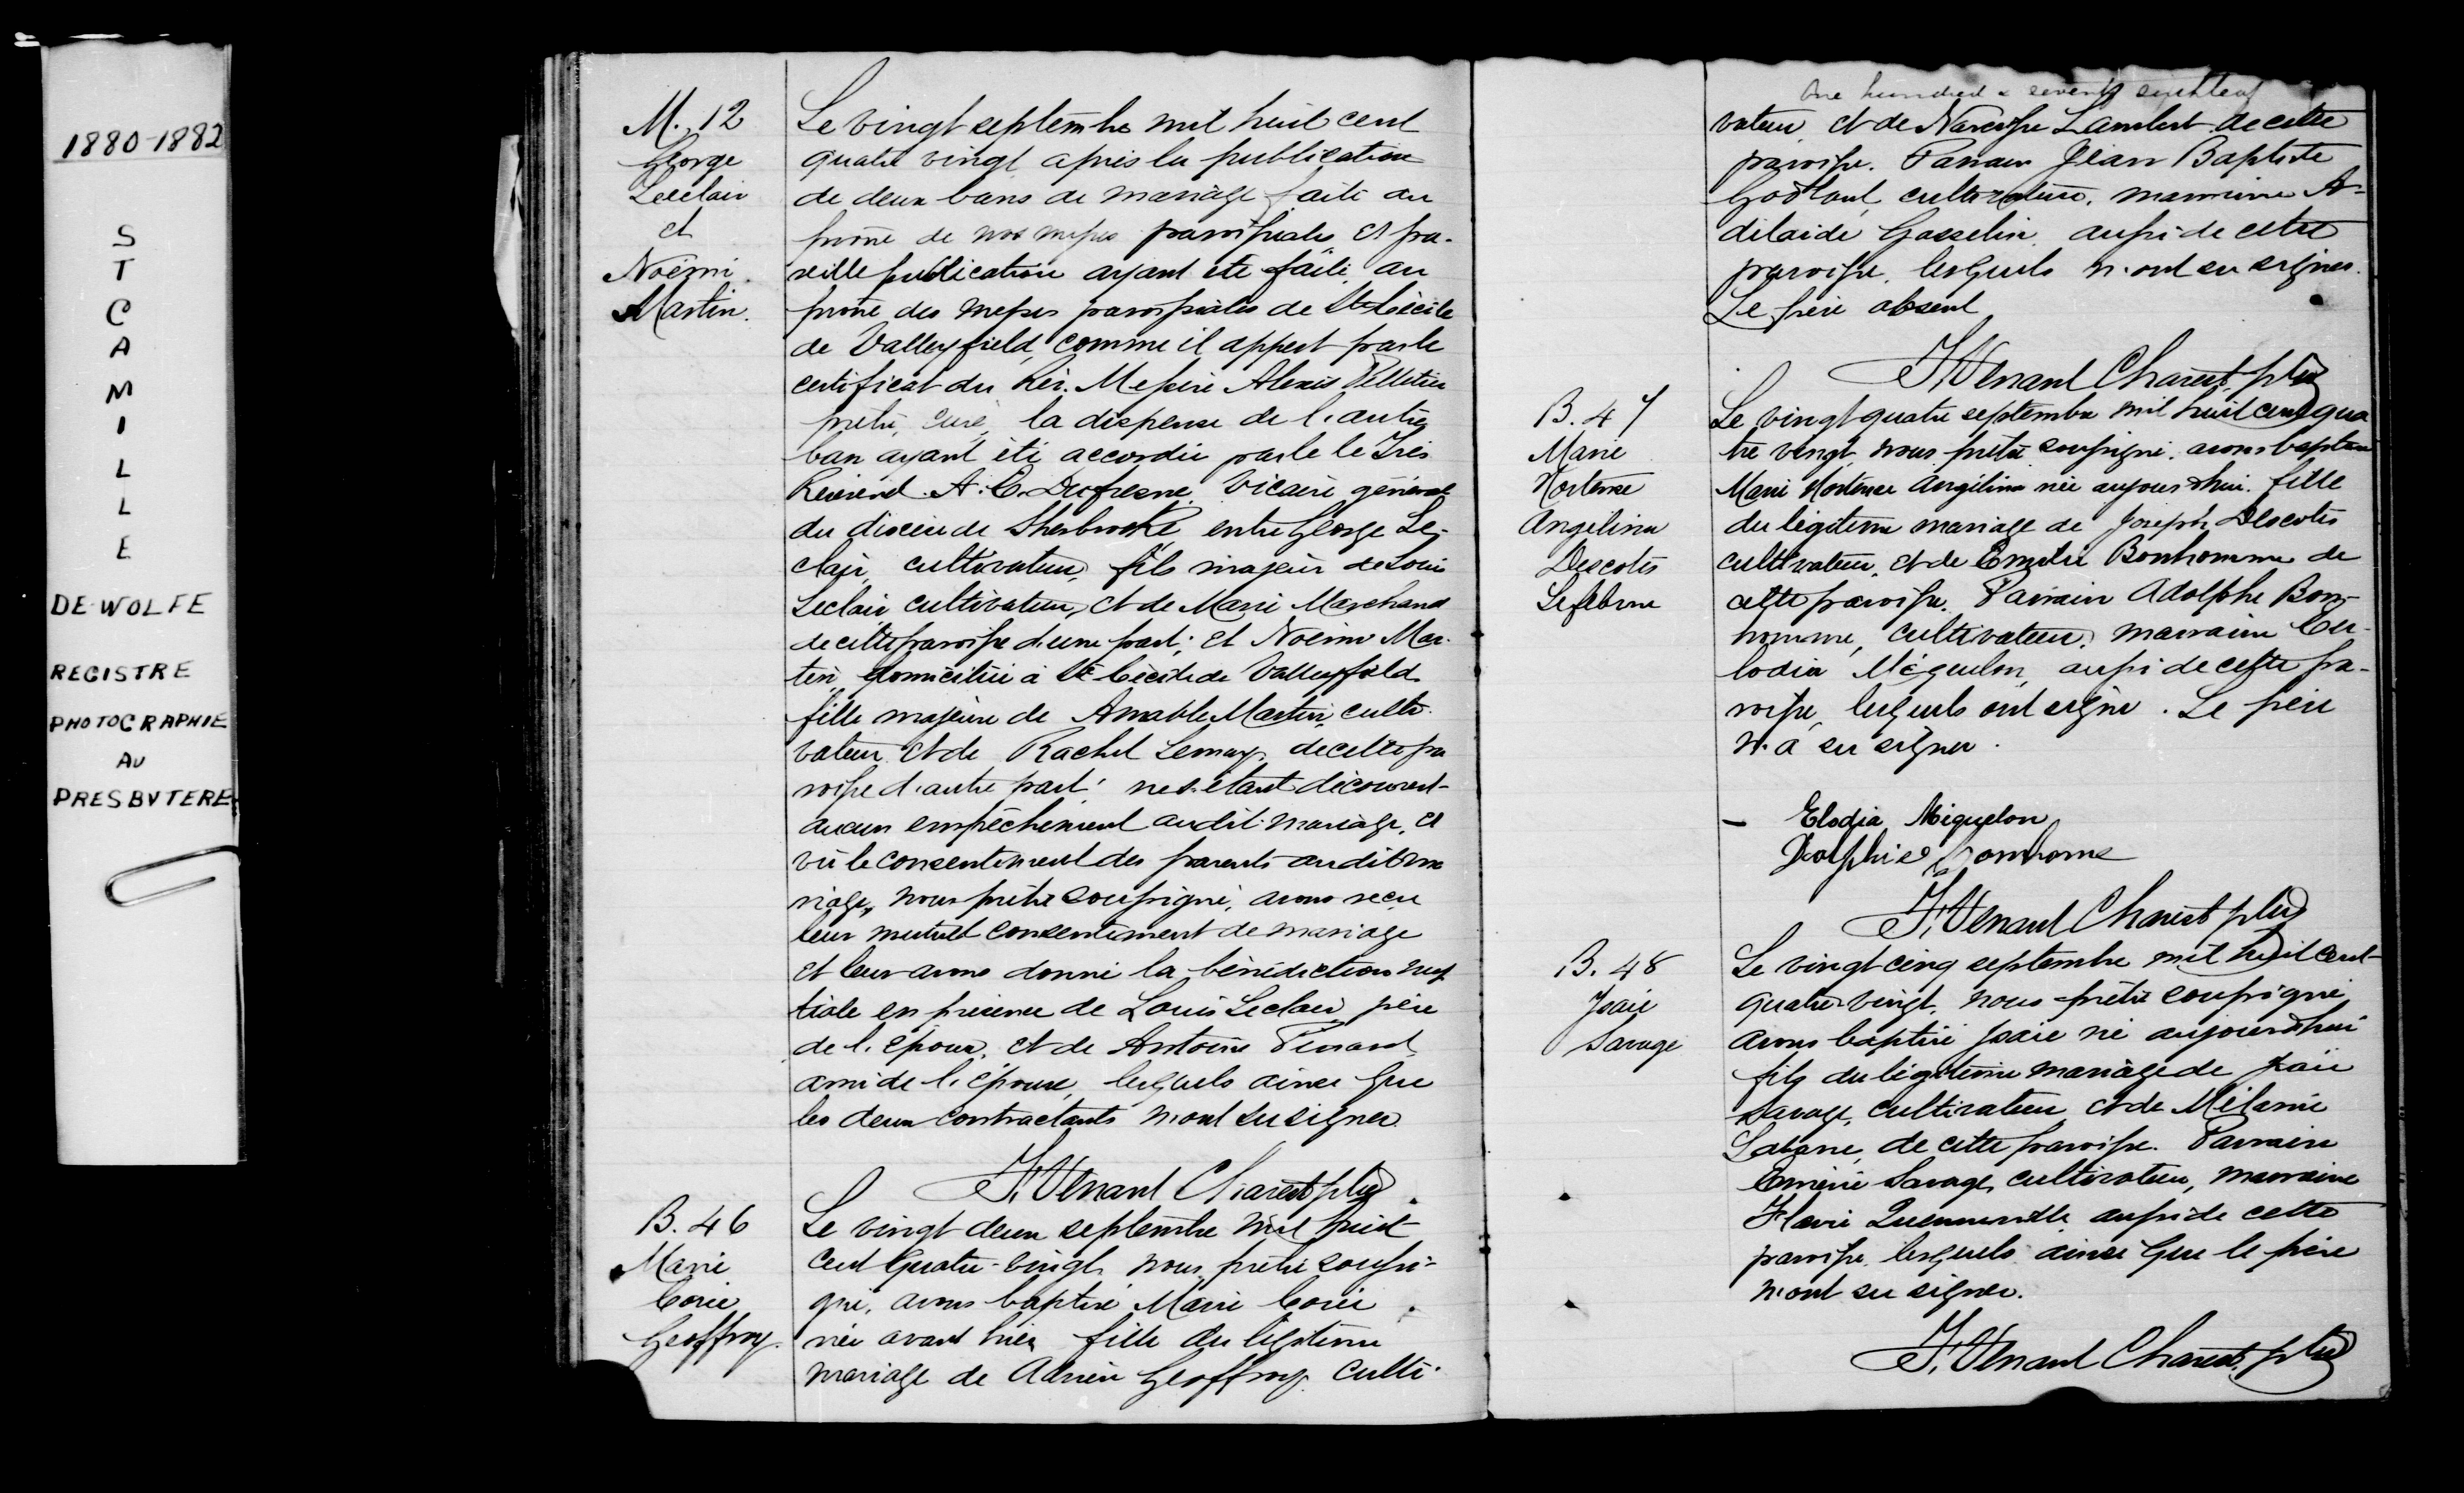 1880-1882
S
T
C
A
M
I
L
L
E
DE WOLFE
REGISTRE
PHOTOGRAPHIE
AU
PRESBYTERE
M. 12
George
Leclair
et
Noëmi
Martin.
Le vingt septembre mil huit cent
quatre vingt, après la publication
de deux bans de mariage faite au
prône de nos messes paroissiales, et pa-
reille publication ayant été faite, au
prône des messes paroissiales de Ste Cécile
de Valleyfield, comme il appert par le
certificat du Rév. Messire Alexis Pelletier
prêtre, curé, la dispense de l'autre
ban ayant été accordée par le le Très
Révérend A. E. Dufresne, Vicaire général
du diocèse de Sherbrooke, entre George Le-
clair, cultivateur, fils majeur de Louis
Leclair, cultivateur, et de Marie Marchand
de cette paroisse d'une part; et Noëmi Mar-
tin, domiciliée à Ste Cécile de Valleyfield
fille majeure de Amable Martin, culti-
vateur et de Rachel Lemay, de cette pa
roisse d'autre part; ne s'étant découvert
aucun empêchement audit mariage, et
vû le consentement des parents audit ma
riage, nous prêtre soussigné, avons reçu
leur mutuel consentement de mariage
et leur avons donné la bénédiction nup
tiale en présence de Louis Leclair, père
de l'époux, et de Antoine Pinard,
ami de l'épouse, lesquels ainsi que
les deux contractants n'ont su signer.
J. Venant Charest, ptre
B. 46
Marie
Corée
Geoffroy.
Le vingt deux septembre mil huit
cent quatre-vingt, nous, prêtre soussi-
gné, avons baptisé Marie Corée
née avant hier, fille du légitime
mariage de Adrien Geoffroy, culti-
One hundred & seventy
vateur et de Narcisse Lambert de cette
paroisse. Parrain Jean Baptiste
cultivateur, marraine A-
délaide Gosselin, aussi de cette
paroisse, lesquels n'ont su signer.
Le père absent
J. Venant Charest, ptre
B. 47
Marie
Hortense
Angélina
Descotes
Lefebvre
Le vingt quatre septembre mil huit cent qua
tre vingt, nous prêtre soussigné, avons baptisé
Marie Hortense Angélina née aujourd'hui, fille
du légitime mariage de Joseph Descotes
cultivateur, et de Emélie Bonhomme de
cette paroisse. Parrain Adolphe Bon-
homme, cultivateur, marraine
lodia Miquelon, aussi de cette pa-
roisse, lesquels ont signé. Le père
n'a su signer.
Elodia Miquelon
J. Venant Charest ptre
B. 48
Isaïe
Savage
Le vingt-cinq septembre mil huit cent
quatre-vingt, nous prêtre soussigné
avons baptisé Isaïe né aujourd'hui
fils du légitime mariage de Isaïe
Savage, cultivateur et de Mélanie
de cette paroisse. Parrain
Savage, cultivateur, marraine
Flavie Quenneville, aussi de cette
paroisse, lesquels ainsi que le père
n'ont su signer.
J. Venant Charest, ptre